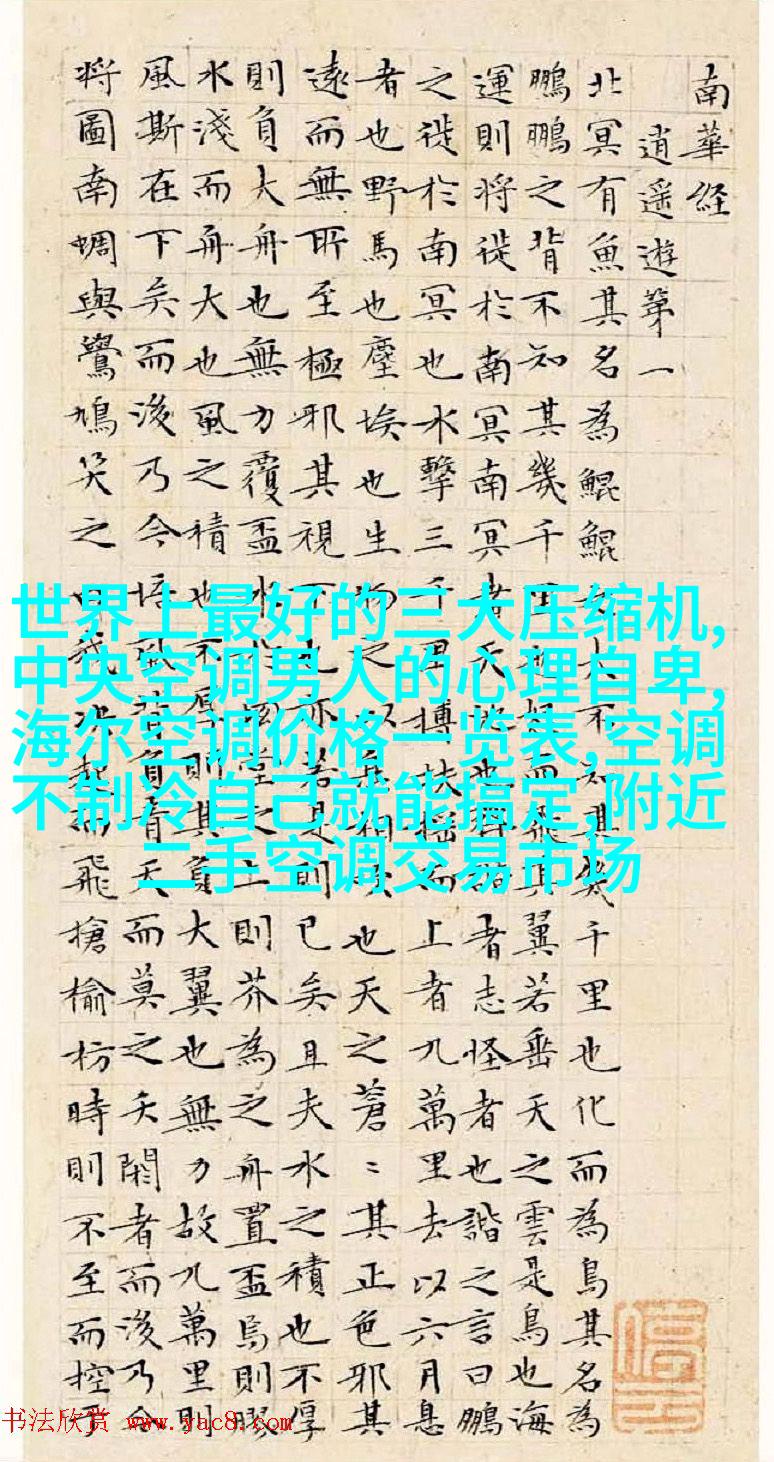 南華経
逍遥遊第一
北冥有魚其名為鯤鯤大不知其幾千里也化而為鳥其名為
鵬鵬之背不知其幾千里也而飛其翼若垂天之雲是鳥也海
運則将徙於南冥南冥者天池也者志怪者也諧之言曰鵬
之徙於南冥也水擊三千里摶扶揺而上者九萬里去以六月息
者也野馬也塵埃也生物之以息相也天之蒼〻其正色邪其
遠而無所至極邪其視下也亦若是則已矣且夫水之積也不厚
則負大舟也無力覆盃水於堂之上則芥為之舟置盃焉則膠
水淺而舟大也風之積也不厚則其負大翼也無力故九萬里則
風斯在下矣而後乃今培風背負青天而莫之夭閼者而後乃今
将圖南蜩與鷽鳩笑之曰我決起而飛搶榆枋時則不至而控於
世界上最好的三大压缩机,
中央空调男人的心理自卑,
海尔空调价格一览表,空调
不制冷自己就能搞定,附近
二手空调交易市场
书法欣赏 www.yac8.com